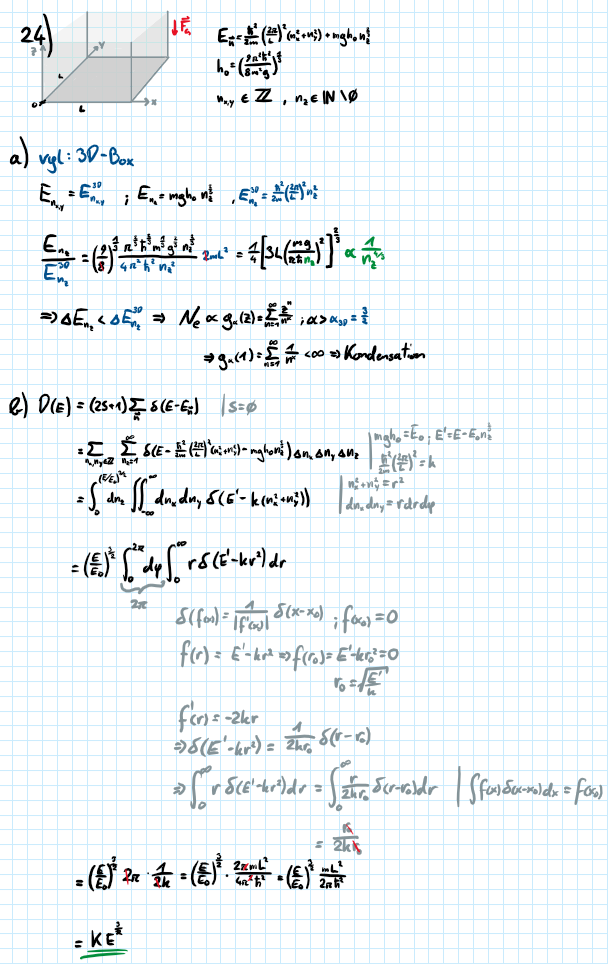 24)
z
y
x
L
L
0
↓F⃗_G
E_n⃗ = ħ²/2m (2π/L)² (n_x² + n_y²) + mgh₀ n_z^(2/3)
h₀ = (9π²ħ²/8m²g)^(1/3)
n_x,y ∈ ℤ , n_z ∈ ℕ \ 0
a) vgl: 3D-Box
E_n_x,y = E^3D_n_x,y ; E_n_z = mgh₀ n_z^(2/3) , E^3D_n_z = ħ²/2m (2π/L)² n_z²
E_n_z / E^3D_n_z = (9/8)^(1/3) π^(2/3) ħ^(2/3) m^(1/3) g^(2/3) n_z^(2/3) / 4π² ħ² n_z² · 2mL² = 1/4 [3L (mg/πħn_z)²]^(2/3) ∝ 1/n_z^(4/3)
⇒ ΔE_n_z < ΔE^3D_n_z ⇒ N_e ∝ g_α(z) = ∑_{n=1}^∞ zⁿ/n^α ; α > α_3D = 3/2
⇒ g_α(1) = ∑_{n=1}^∞ 1/n^α < ∞ ⇒ Kondensation
b) D(E) = (2S+1) ∑_n⃗ δ(E-E_n⃗) | S=0
= ∑_{n_x,n_y∈ℤ} ∑_{n_z=1}^∞ δ(E - ħ²/2m (2π/L)² (n_x²+n_y²) - mgh₀n_z^(2/3)) Δn_x Δn_y Δn_z | mgh₀ = E₀ ; E' = E-E₀n_z^(2/3)
ħ²/2m (2π/L)² = k
= ∫_0^{(E/E₀)^(3/2)} dn_z ∬_{-∞}^∞ dn_x dn_y δ(E' - k(n_x²+n_y²)) | n_x²+n_y² = r²
dn_x dn_y = r dr dφ
= (E/E₀)^(3/2) ∫_0^{2π} dφ ∫_0^∞ r δ(E'-kr²) dr
2π
δ(f(x)) = 1/|f'(x₀)| δ(x-x₀) ; f(x₀) = 0
f(r) = E'-kr² ⇒ f(r₀) = E'-kr₀² = 0
r₀ = √(E'/k)
f'(r) = -2kr
⇒ δ(E'-kr²) = 1/2kr₀ δ(r-r₀)
⇒ ∫_0^∞ r δ(E'-kr²) dr = ∫_0^∞ r/2kr₀ δ(r-r₀) dr | ∫f(x)δ(x-x₀)dx = f(x₀)
= r₀/2kr₀
= (E/E₀)^(3/2) 2π · 1/2k = (E/E₀)^(3/2) · 2πmL²/4π²ħ² = (E/E₀)^(3/2) mL²/2πħ²
= K E^(3/2)